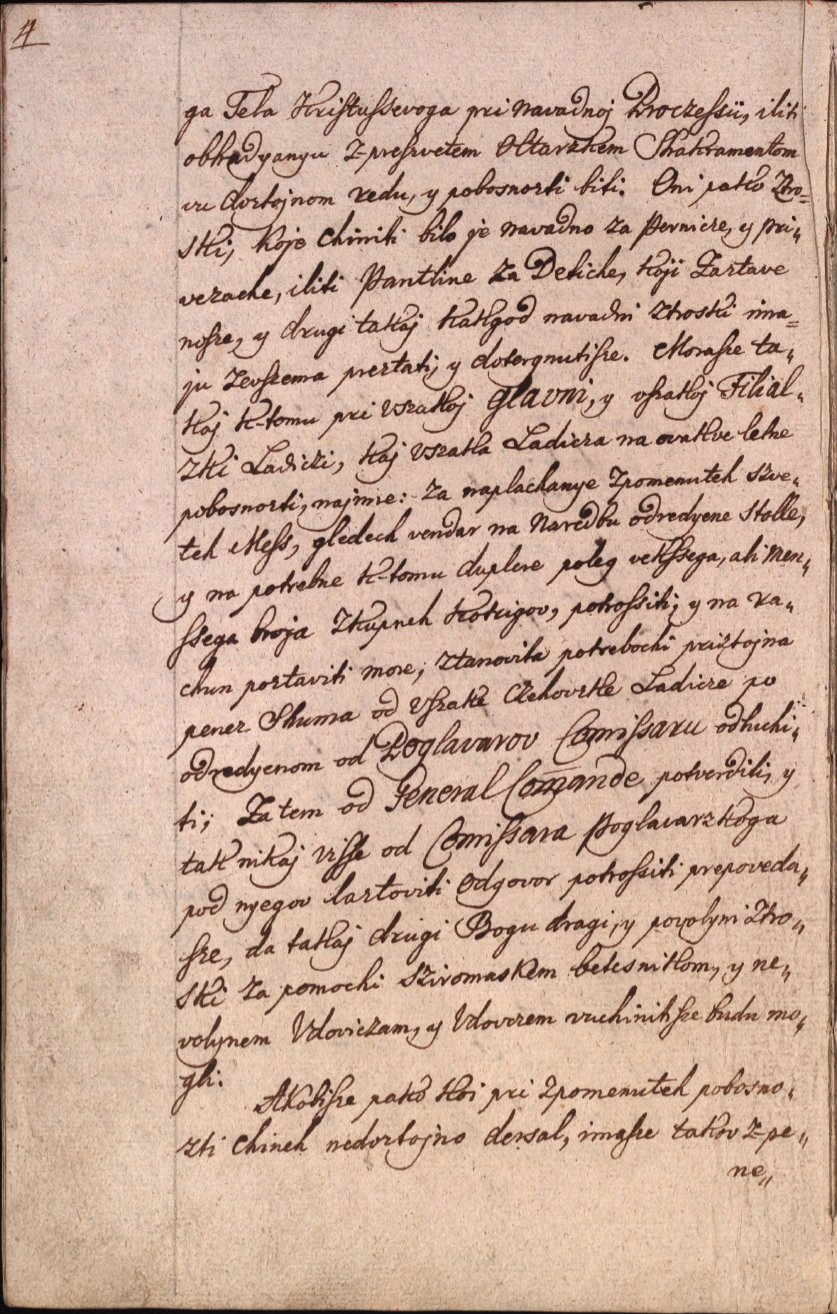 4
ga Tela Kristussevoga pri navadnoj Proczessii, iliti
obhadyanyu Z-presvetem Oltarzkem Shakramentom
vu doztojnom redu, y pobosnozti biti. Oni pako Ztro-
ski, koje chiniti bilo je navadno za Pernicze, y pri„
vezache, iliti Pantline za Detiche, koji Zaztave
nosze, y drugi takaj kakgod navadni ztroski ima-
ju zevszema preztati, y dotergnutisze. Morasze ta„
kaj k-tomu pri vszakoj glavni, y vszakoj Filial„
zki Ladiczi, kaj vszaka Ladicza na ovakve letne
pobosnozti, najmre: za naplachanye zpomenuteh sze„
teh Mess, gledech vendar na Naredbu odredyene Stolle,
y na potrebne k-tomu duplere poleg vekssega, ali men„
ssega broja Zkupneh kotrigov, potrossiti, y na ra„
chun poztaviti more, ztanovita potrebochi priztojna
penez Shuma od vszake Czehovzke Ladicze po
odredyenom od Poglavarov Comissaru odluchi„
ti; Za tem od General Comande potverditi, y
tak nikaj visse od Comissara Poglavarzkoga
pod nyegov laztoviti odgovor potrossiti prepoveda„
sze, da takaj drugi Bogu dragi, y povolyni Ztro„
ski za pomochi sziromaskem betesnikom, y ne„
volynem Vdoviczam, y Vdovczem vuchinitisze budu mo„
gli.
Akobisze pako koi pri zpomenuteh pobosno„
zti chineh nedoztojno dersal, imasze takov z-pe„
ne„